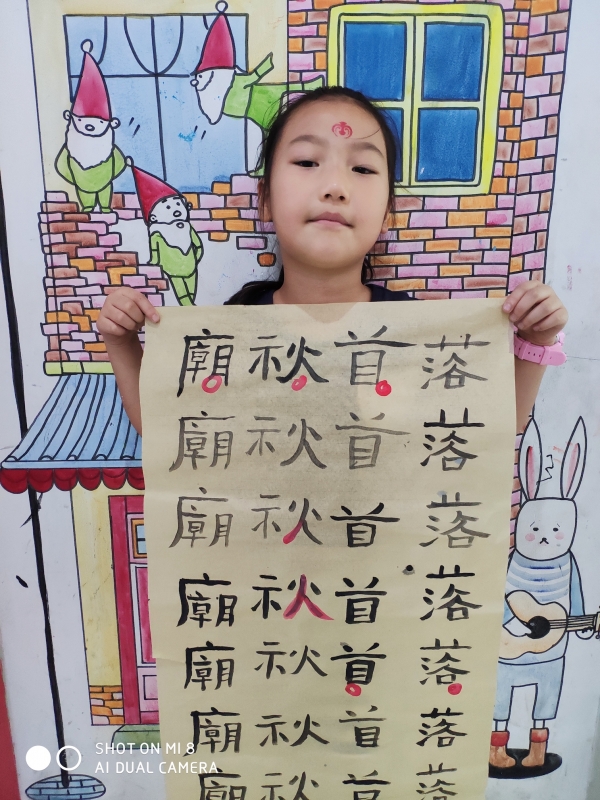 廟 秋 首 落
廟 秋 首 落
廟 秋 首 落
廟 秋 首 落
廟 秋 首 落
廟 秋 首 落
廟 秋 首 落
SHOT ON MI 8
AI DUAL CAMERA